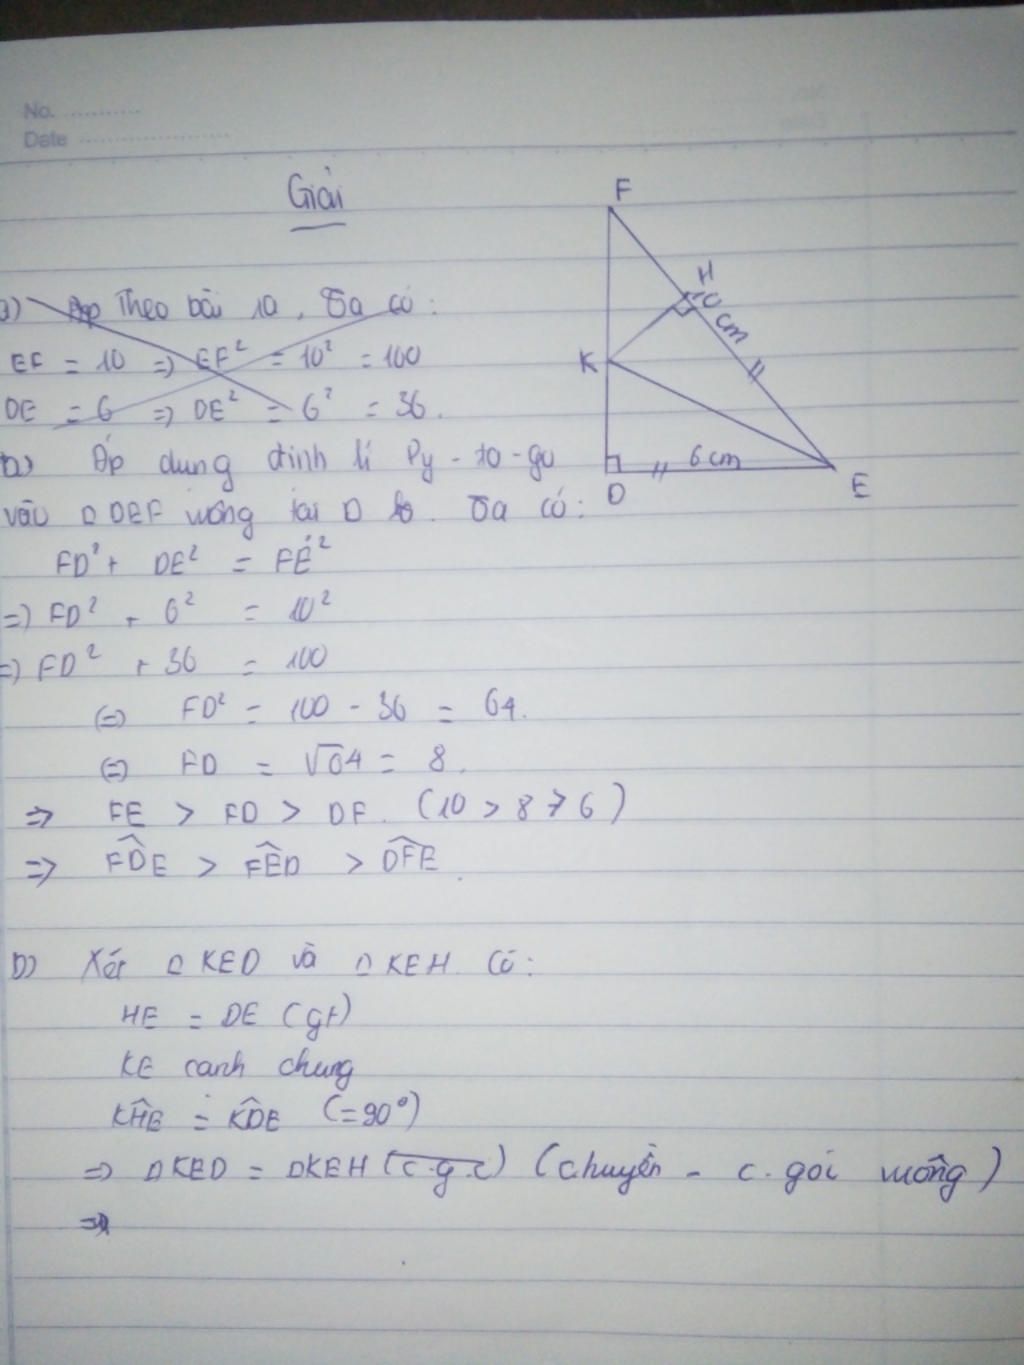 No.
Date
Giải
F
a) Theo bài ra, Ta có:
H
EF = 10 => EF² = 10² = 100
cm
K
DE = 6 => DE² = 6² = 36.
6 cm
D
E
a) Áp dụng định lí Py-ta-go
vào △DEF vuông tại D. Ta có:
FD² + DE² = FE²
=> FD² + 6² = 10²
=> FD² + 36 = 100
(=) FD² = 100 - 36 = 64.
(=) FD = √64 = 8.
=> FE > FD > DF. (10 > 8 > 6)
=> FDE > FED > DFE.
b) Xét △KED và △KEH. Có:
HE = DE (gt)
KE cạnh chung
KHE = KDE (=90°)
=> △KED = △KEH (c.g.c) (chuyền - c. gói vuông)
=>